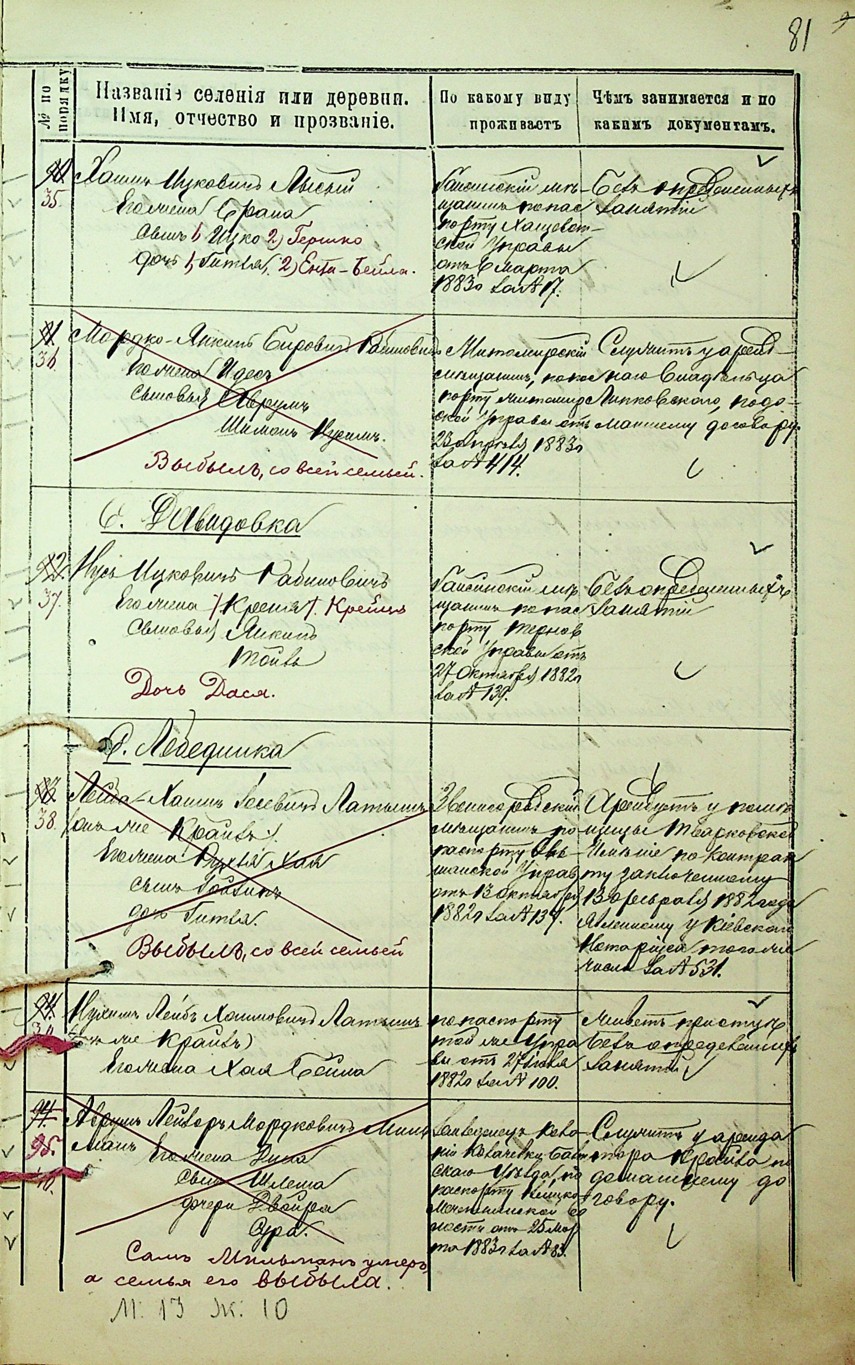 81
№ по порядку
Названіе селенія или деревни.
Имя, отчество и прозваніе.
По какому виду
проживаетъ
Чѣмъ занимается и по
какимъ документамъ.
35.
Хаимъ Ицковичъ Лысый
Его жена Брана
сынъ 1, Ицко 2) Гершко
дочь 1, Гитля, 2) Ента-Бейла.
Гайсинскій мѣ-
щанинъ по пас
порту Хащеват-
ской Управы
отъ 6 Марта
1883 г за № 17.
Безъ опредѣленныхъ
занятій
36.
Мордко-Янкипъ Рабиновичъ
Его жена Идесъ
сыновья Аврумъ
Шимонъ Нухимъ.
Выбылъ, со всей семьей.
Житомирскій
мѣщанинъ, по пас
порту Житомир
ской Управы отъ
1883 г
за № 414.
Служитъ у
Липковскаго, по до-
машнему договору.
с. Давидовка
37.
Ицковичъ Рабиновичъ
Его жена Крейня Крейнъ
сыновья Янкипъ
Дочь Дася.
Гайсинскій мѣ
щанинъ по пас
порту Тернов
ской Управы отъ
27 Октября 1882 г
за № 139.
Безъ опредѣленныхъ
занятій
д. Лебединка
38.
Лейба-Хаимъ Латышъ
онъ же Крайвъ
Его жена Хая
сынъ
дочь Гитля.
Выбылъ, со всей семьей
Звенигородскій
мѣщанинъ по
паспорту
шанской Управы
отъ 13 октября
1882 г за № 139.
Арендуетъ у помѣ
щицы Тварковской
Имѣніе по контрак
ту заключенному
13 февраля 1882 года
явленному у Кіевскаго
Нотаріуса того же
числа за № 531.
Нухимъ Лейбъ Хаимовичъ Латышъ
онъ же Крайвъ)
Его жена Хая Бейла
по паспорту
той же Упра
вы отъ 27 Іюня
1882 г за № 100.
Живетъ при отцѣ
Безъ опредѣленныхъ
занятій
Аврумъ Лейзоръ Мордковичъ Миль
манъ Его жена Дина
сынъ Шлема
дочери Двойра
Сура.
Самъ Мильманъ умеръ,
а семья его выбыла.
скаго Уѣзда, по
паспорту
ности отъ 25 Мар
та 1883 г за № 83.
Служитъ у аренда
тора Крайва по
домашнему до
говору.
М. 13 Ж. 10